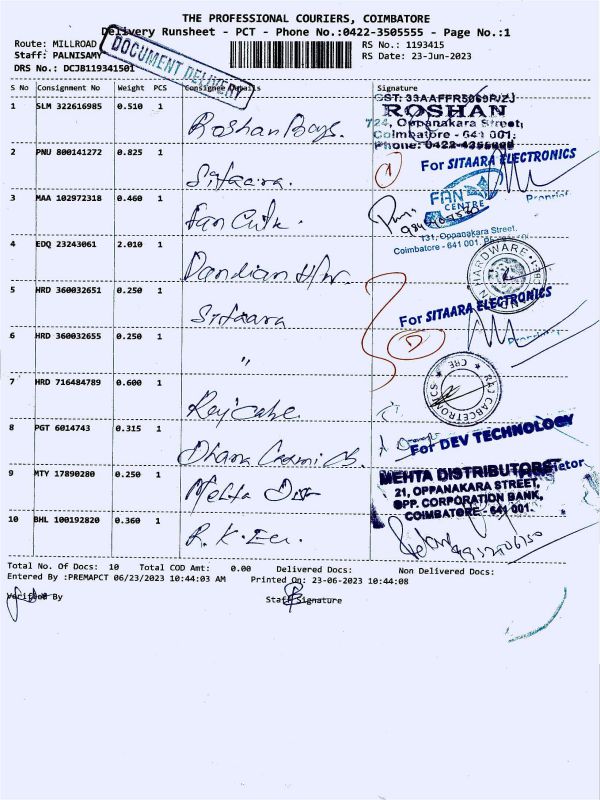 THE PROFESSIONAL COURIERS, COIMBATORE
Delivery Runsheet - PCT - Phone No.:0422-3505555 - Page No.:1
Route: MILLROAD
RS No.: 1193415
Staff: PALNISAMY
RS Date: 23-Jun-2023
DRS No.: DCJ8119341501
DOCUMENT DELIVERY
S No Consignment No Weight PCS Consignee Details Signature
1 SLM 322616985 0.510 1 Roshan Bags.
ROSHAN
724, Oppanakara Street,
Coimbatore - 641 001.
2 PNU 800141272 0.825 1 Sitaara.
For SITAARA ELECTRONICS
3 MAA 102972318 0.460 1 Fan Centre
FAN CENTRE
131, Oppanakara Street,
Coimbatore - 641 001.
4 EDQ 23243061 2.010 1 Pandian H/w.
HARDWARE
5 HRD 360032651 0.250 1 Sitaara
For SITAARA ELECTRONICS
6 HRD 360032655 0.250 1 "
7 HRD 716484789 0.600 1
RAJ CABCETRONICS
8 PGT 6014743 0.315 1
For DEV TECHNOLOGY
9 MTY 17890280 0.250 1 Mehta Dist
MEHTA DISTRIBUTORS
21, OPPANAKARA STREET,
OPP. CORPORATION BANK,
COIMBATORE - 641 001.
10 BHL 100192820 0.360 1 R.K. Ele.
Total No. Of Docs: 10 Total COD Amt: 0.00 Delivered Docs: Non Delivered Docs:
Entered By :PREMAPCT 06/23/2023 10:44:03 AM Printed On: 23-06-2023 10:44:08
Verified By Staff Signature